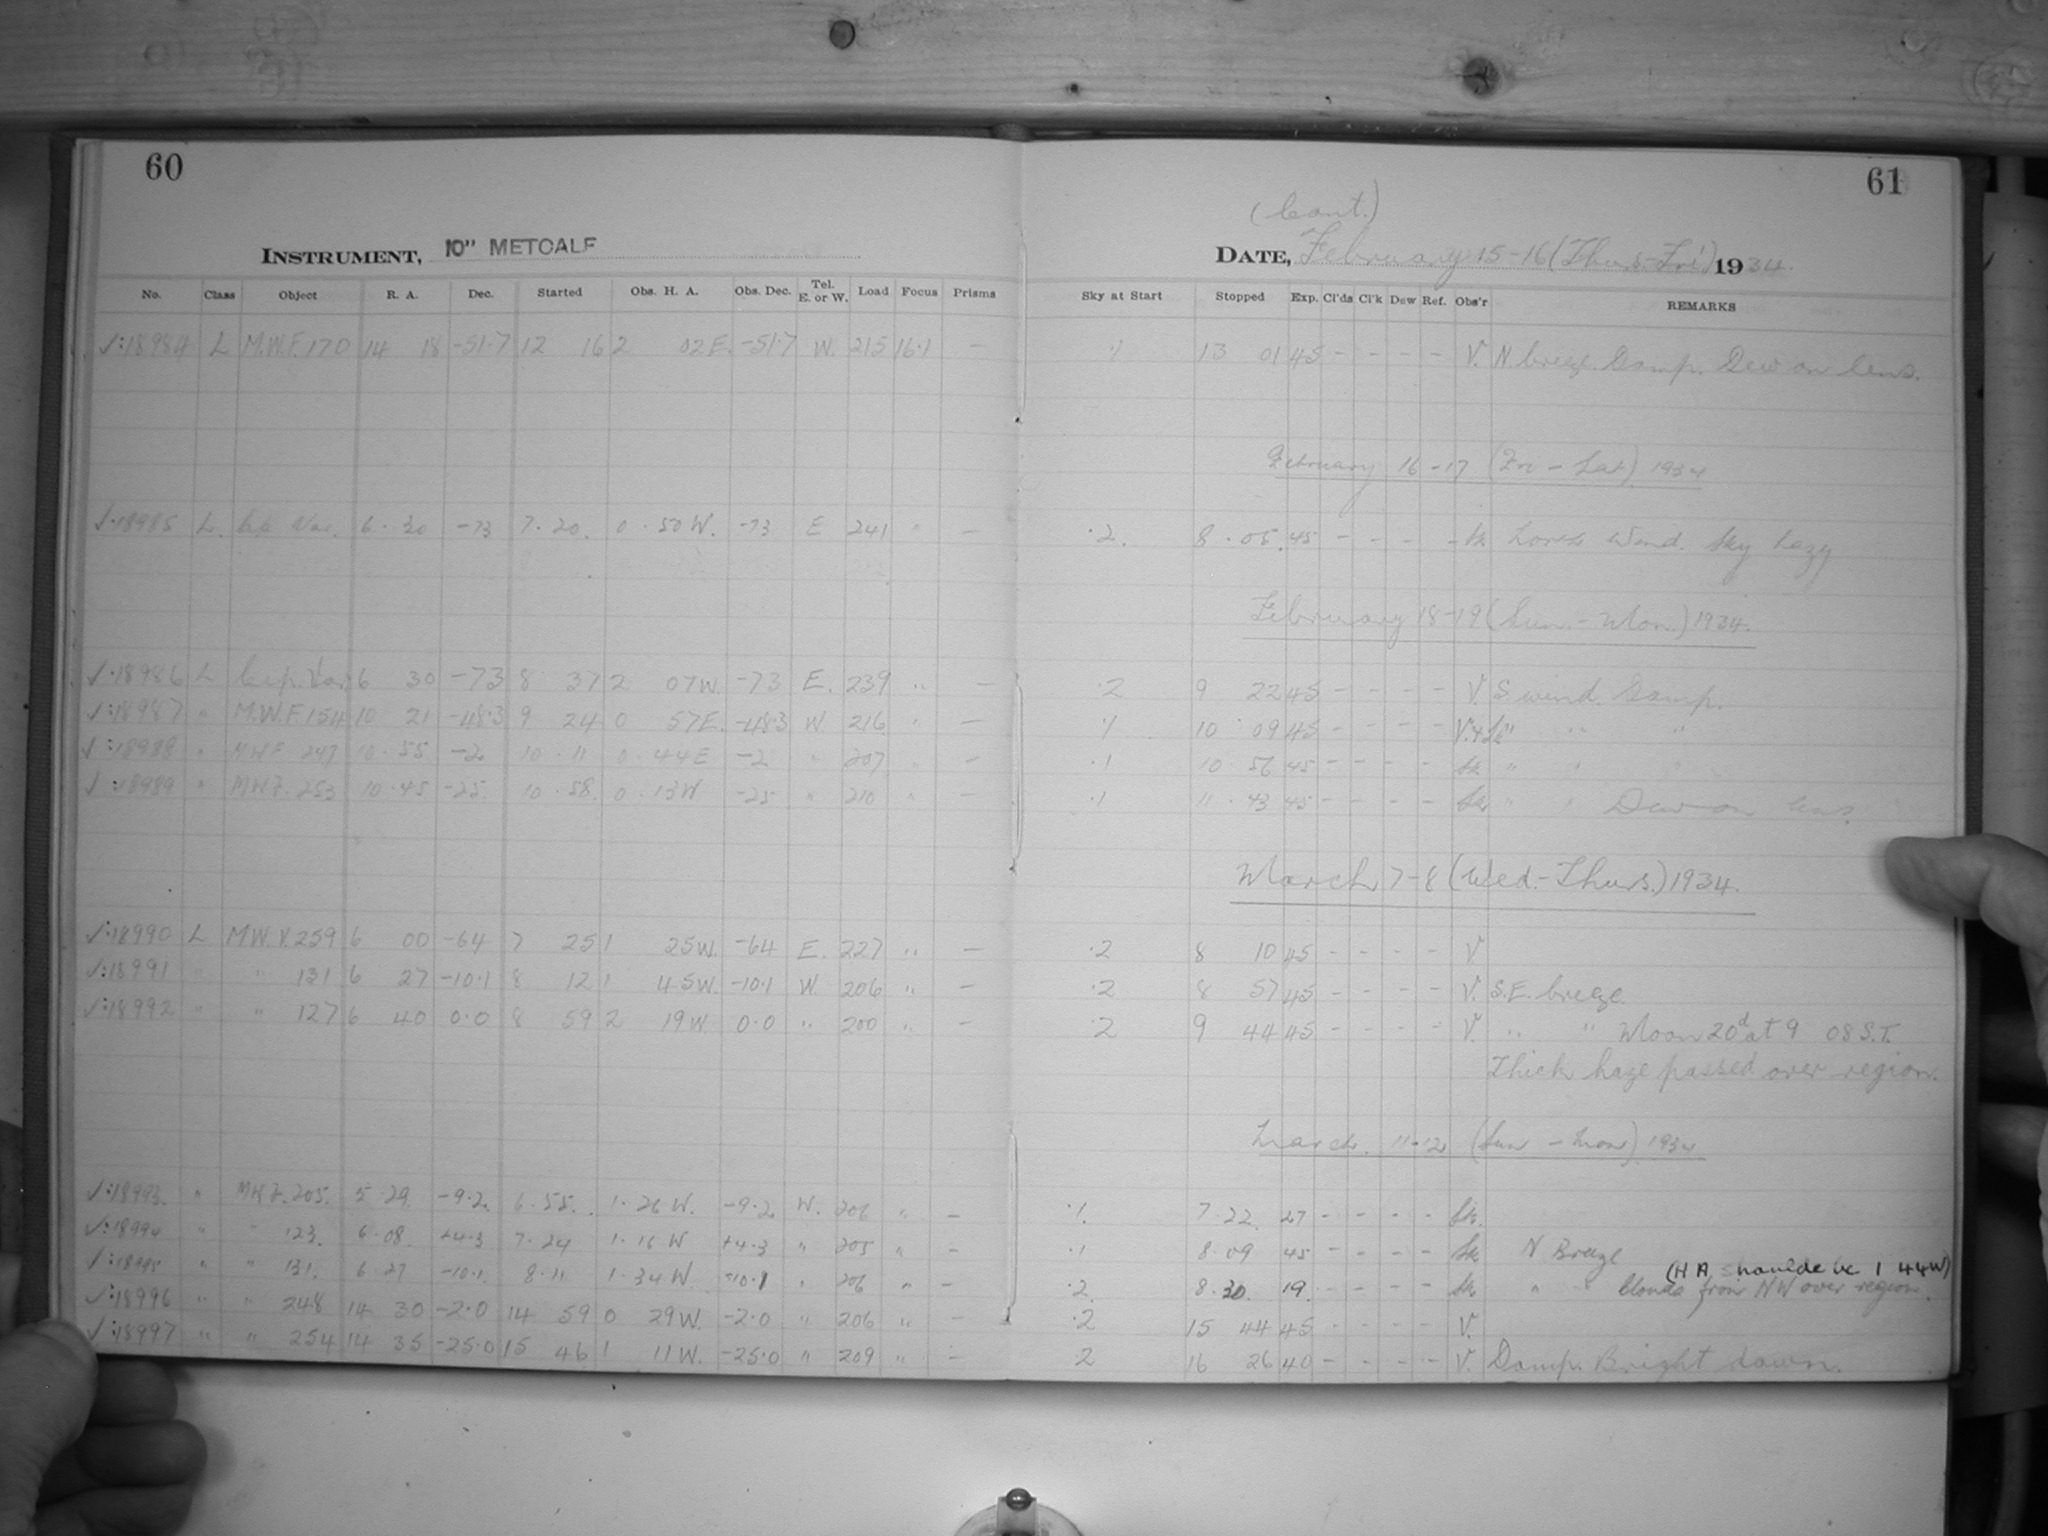 60
61
(Cont.)
INSTRUMENT, 10" METCALF
DATE, February 15-16 (Thurs-Fri) 1934.
No. Class Object R. A. Dec. Started Obs. H. A. Obs. Dec. Tel. E. or W. Load Focus Prisms Sky at Start Stopped Exp. Cl'ds Cl'k Dew Ref. Obs'r REMARKS
√:18984 L M.W.F. 170 14 18 -51.7 12 16 2 02 E. -51.7 W. 215 16.1 — ·1 13 01 45 - - - - V. N. breeze. Damp. Dew on lens.
February 16-17 (Fri - Sat) 1934
√·18985 L. Cep. Var. 6·30 -73 7·20. 0·50 W. -73 E 241 " — ·2. 8·05. 45 - - - - Sk Lovely Wind. Sky hazy
February 18-19 (Sun.-Mon.) 1934.
√·18986 L Cep. Var 6 30 -73 8 37 2 07 W. -73 E. 239 " — ·2 9 22 45 - - - - V. S. wind. Damp.
√:18987 " M.W.F. 154 10 21 -48.3 9 24 0 57 E. -48.3 W 216 " — ·1 10 09 45 - - - - V.+Sk " " "
√:18988 " M.W.F. 247 10·55 -2 10·11 0·44 E -2 " 207 " — ·1 10·56 45 - - - - Sk " " "
√:18989 " M.W.F. 253 10·45 -25. 10·58. 0·13 W -25 " 210 " — ·1 11·43 45 - - - - Sk " " Dew on lens.
March 7-8 (Wed.-Thurs.) 1934.
√:18990 L M.W.V. 259 6 00 -64 7 25 1 25 W. -64 E. 227 " — ·2 8 10 45 - - - - V
√:18991 " " 131 6 27 -10.1 8 12 1 45 W. -10.1 W. 206 " — ·2 8 57 45 - - - - V. S.E. breeze.
√:18992 " " 127 6 40 0.0 8 59 2 19 W 0.0 " 200 " — ·2 9 44 45 - - - - V. " " Moon 20d at 9 08 S.T.
Thick haze passed over region.
March 11-12 (Sun - Mon) 1934
√:18993. " M.W.F. 205. 5·29. -9.2 6·55. 1·26 W. -9.2 W. 206 " — ·1. 7·22. 27 - - - - Sk.
√:18994 " " 123. 6·08. +4.3 7·24 1·16 W +4.3 " 205 " — ·1 8·09 45 - - - - Sk N Breeze
(H A shoulde be 1 44W)
√:18995 " " 131. 6·27 -10.1. 8·11 1·34 W. -10.1 " 206 " — ·2. 8·30. 19. - - - - Sk " " Clouds from NW over region.
√:18996 " " 248 14 30 -2.0 14 59 0 29 W. -2.0 " 206 " — ·2 15 44 45 - - - - V.
√:18997 " " 254 14 35 -25.0 15 46 1 11 W. -25.0 " 209 " — 2 16 26 40 - - - - V. Damp. Bright dawn.